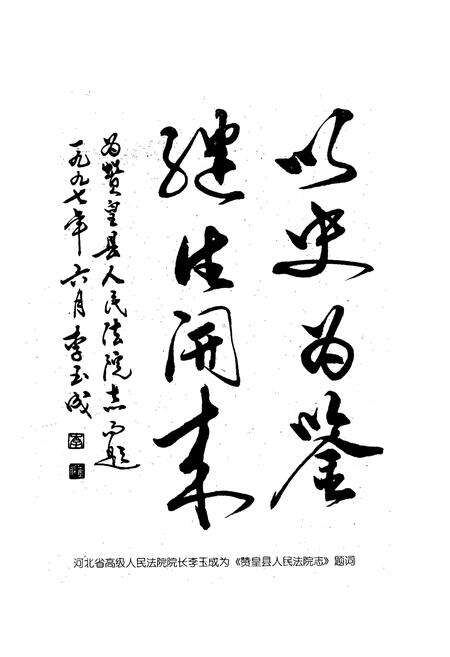 以史为鉴
继往开来
为赞皇县人民法院志而题
一九九七年六月 李玉成
河北省高级人民法院院长李玉成为《赞皇县人民法院志》题词